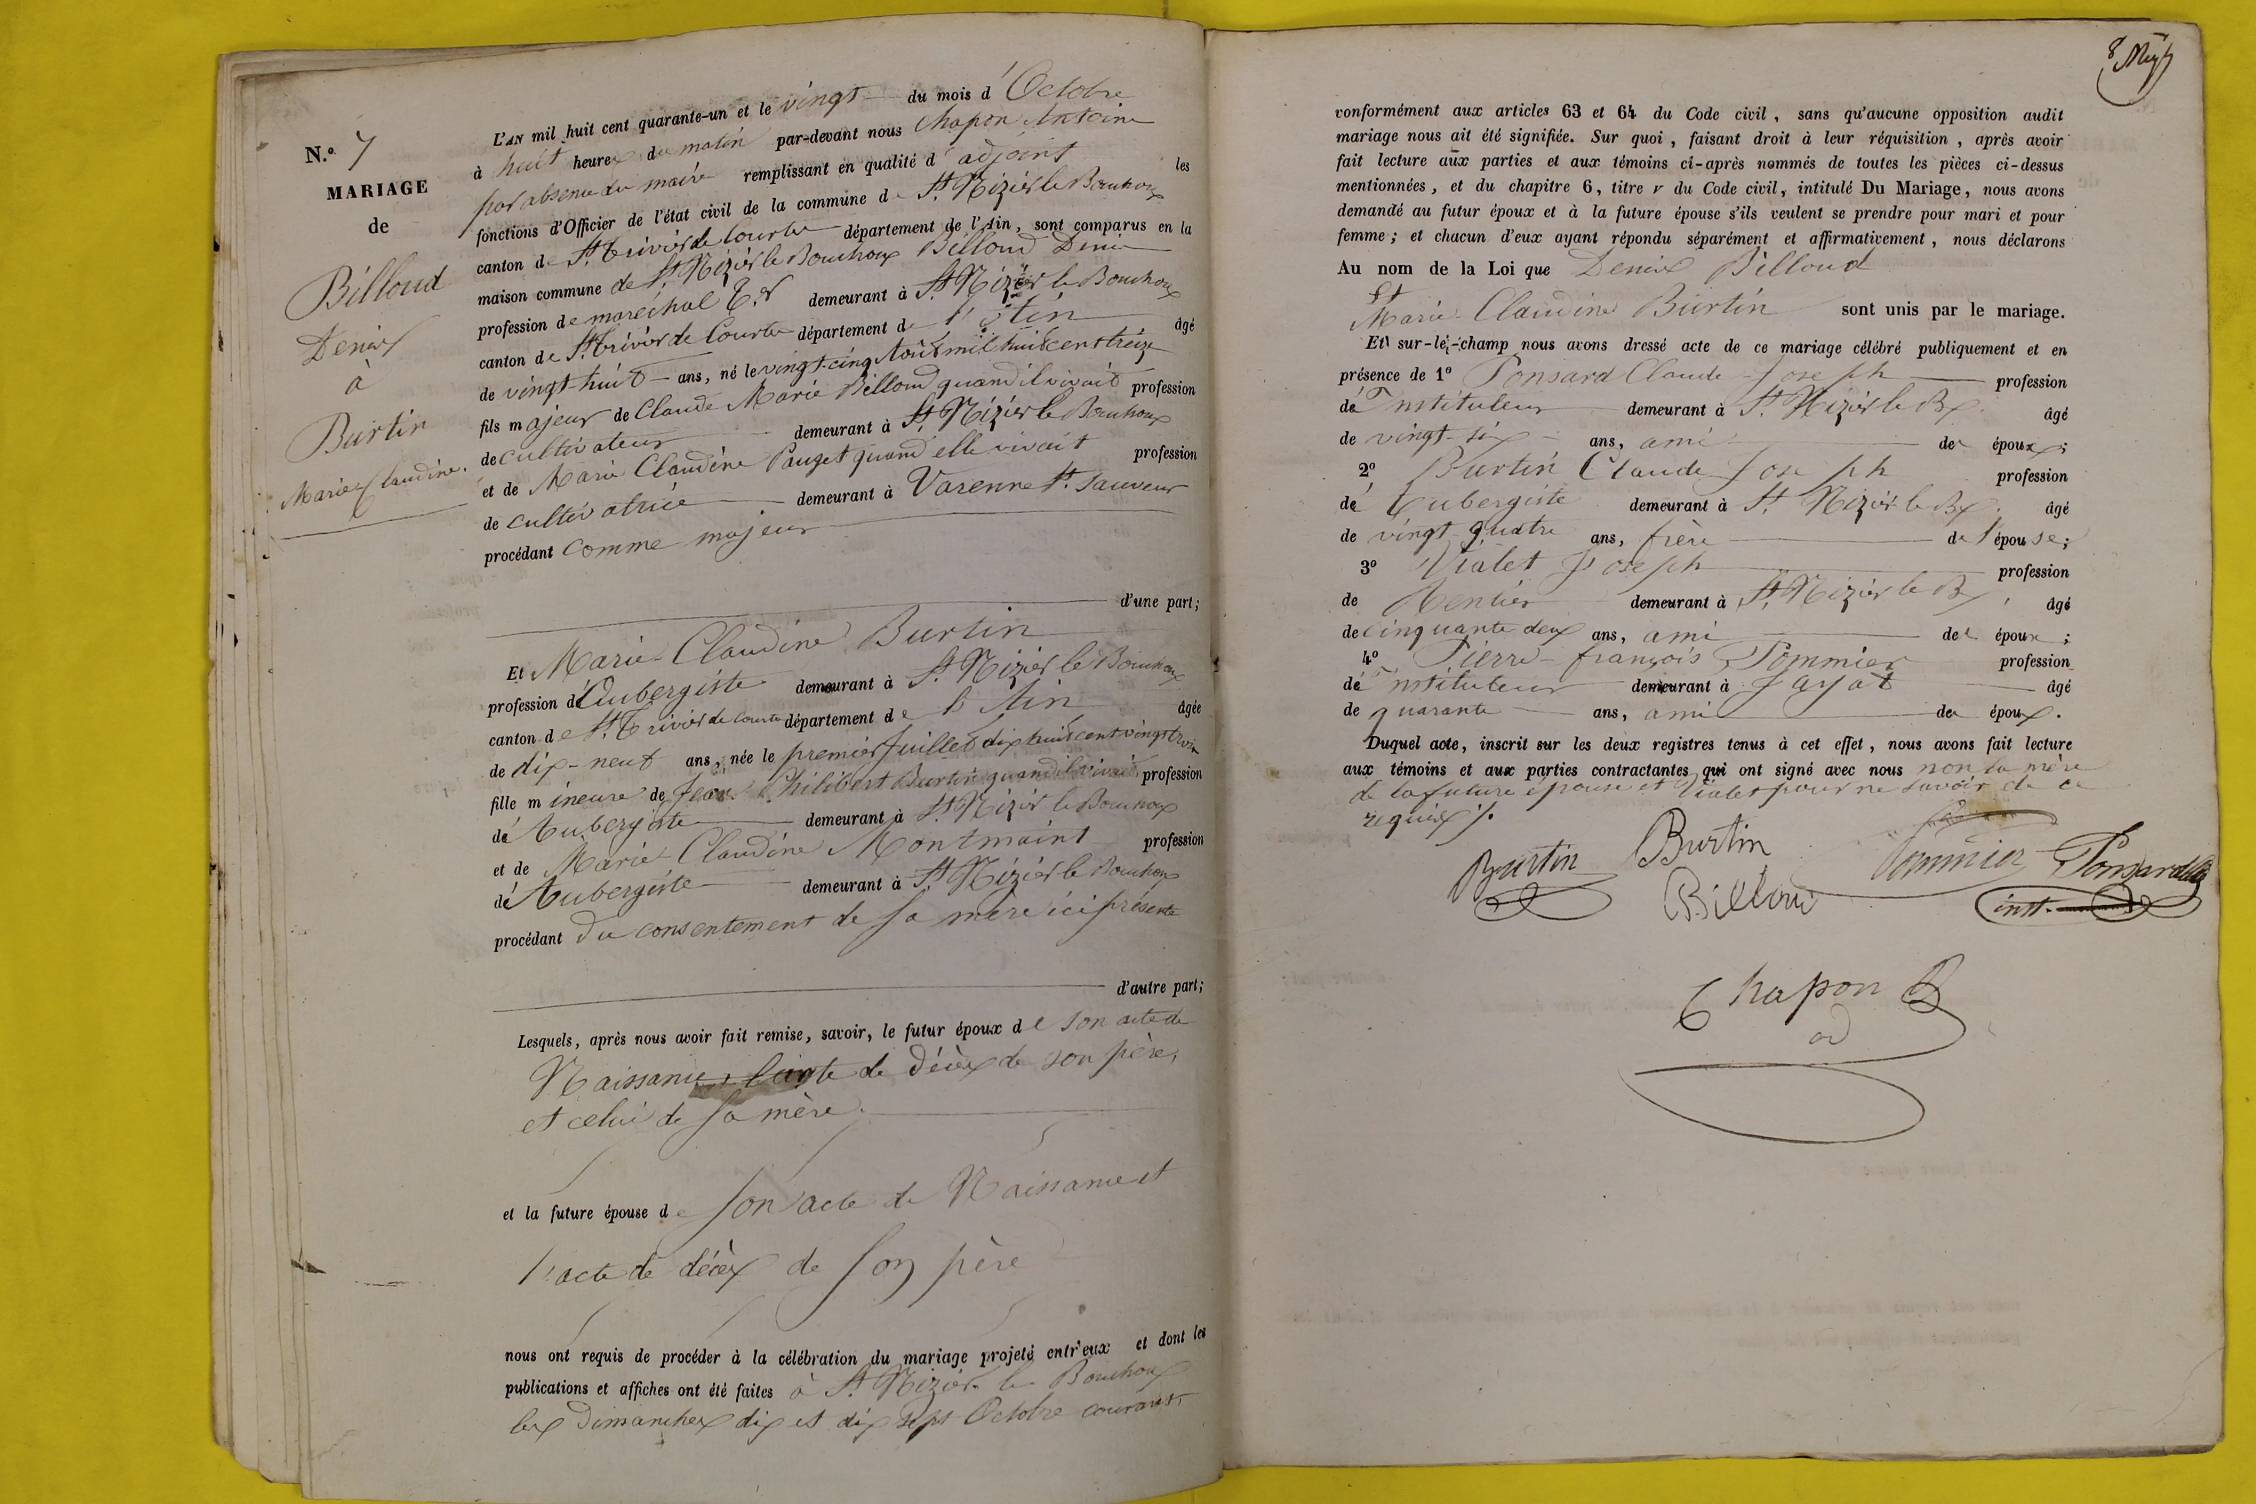 N.o 7
MARIAGE
de
Billoud
Denis
à
Burtin
Marie Claudine.
L'AN mil huit cent quarante-un et le vingt du mois d'Octobre
à huit heures du matin par-devant nous Chapon Antoine
par absence du maire remplissant en qualité d'adjoint les
fonctions d'Officier de l'état civil de la commune de St. Nizier le Bouchoux
canton de St. Trivier de Courtes département de l'Ain, sont comparus en la
maison commune de St. Nizier le Bouchoux Billoud Denis
profession de maréchal t.t demeurant à St. Nizier le Bouchoux
canton de St. Trivier de Courtes département de l'Ain âgé
de vingt huit ans, né le vingt-cinq Août mil huit cent treize
fils majeur de Claude Marie Billoud quand il vivait profession
de cultivateur demeurant à St. Nizier le Bouchoux
et de Marie Claudine Pauget quand elle vivait profession
de cultivatrice demeurant à Varenne St. Sauveur
procédant comme majeur
d'une part;
Et Marie Claudine Burtin
profession d'Aubergiste demeurant à St. Nizier le Bouchoux
canton de St. Trivier de Courtes département de l'Ain âgée
de dix-neuf ans, née le premier Juillet dix huit cent vingt trois
fille mineure de Jean Philibert Burtin quand il vivait profession
d'Aubergiste demeurant à St. Nizier le Bouchoux
et de Marie Claudine Montmaint profession
d'Aubergiste demeurant à St. Nizier le Bouchoux
procédant du consentement de sa mère ici présente
d'autre part;
Lesquels, après nous avoir fait remise, savoir, le futur époux de son acte de
Naissance, l'acte de décès de son père,
et celui de sa mère.
et la future épouse de son acte de Naissance et
l'acte de décès de son père
nous ont requis de procéder à la célébration du mariage projeté entr'eux et dont les
publications et affiches ont été faites à St. Nizier le Bouchoux
les Dimanches dix et dix sept Octobre courant,
8
conformément aux articles 63 et 64 du Code civil, sans qu'aucune opposition audit
mariage nous ait été signifiée. Sur quoi, faisant droit à leur réquisition, après avoir
fait lecture aux parties et aux témoins ci-après nommés de toutes les pièces ci-dessus
mentionnées, et du chapitre 6, titre v du Code civil, intitulé Du Mariage, nous avons
demandé au futur époux et à la future épouse s'ils veulent se prendre pour mari et pour
femme; et chacun d'eux ayant répondu séparément et affirmativement, nous déclarons
Au nom de la Loi que Denis Billoud
et
Marie Claudine Burtin sont unis par le mariage.
Et sur-le-champ nous avons dressé acte de ce mariage célébré publiquement et en
présence de 1o Ponsard Claude Joseph profession
d'Instituteur demeurant à St. Nizier le Bx. âgé
de vingt-six ans, ami des époux;
2o Burtin Claude Joseph profession
d'Aubergiste demeurant à St. Nizier le Bx. âgé
de vingt quatre ans, frère de l'épouse;
3o Vialet Joseph profession
de Rentier demeurant à St. Nizier le B. âgé
de cinquante deux ans, ami des époux;
4o Pierre-françois Pommier profession
d'Instituteur demeurant à Jayat âgé
de quarante ans, ami des époux.
Duquel acte, inscrit sur les deux registres tenus à cet effet, nous avons fait lecture
aux témoins et aux parties contractantes qui ont signé avec nous non la mère
de la future épouse et Vialet pour ne savoir de ce
requis /.
Burtin Burtin Pommier Ponsard
Billoud inst.
Chapon
ad